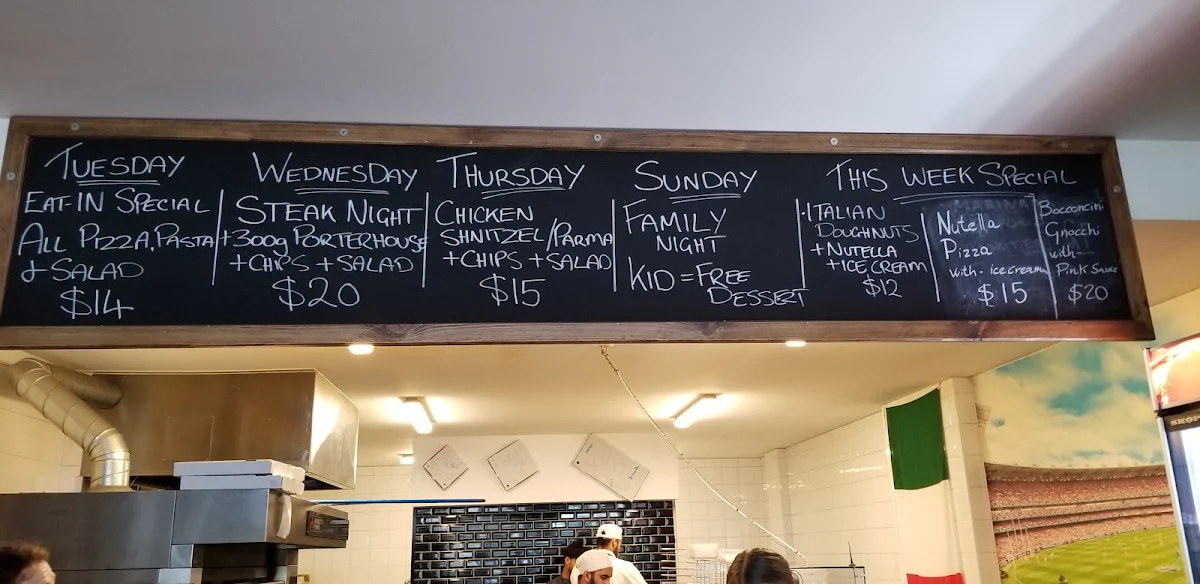 TUESDAY
EAT-IN SPECIAL
ALL PIZZA, PASTA
& SALAD
$14
WEDNESDAY
STEAK NIGHT
+300g PORTERHOUSE
+CHIPS +SALAD
$20
THURSDAY
CHICKEN
SHNITZEL/PARMA
+CHIPS +SALAD
$15
SUNDAY
FAMILY
NIGHT
KID = FREE
DESSERT
THIS WEEK SPECIAL
ITALIAN
DOUGHNUTS
+NUTELLA
+ICE CREAM
$12
Nutella
Pizza
with- icecream
$15
Bocconcini
Gnocchi
with-
Pink Sauce
$20
SKOPE